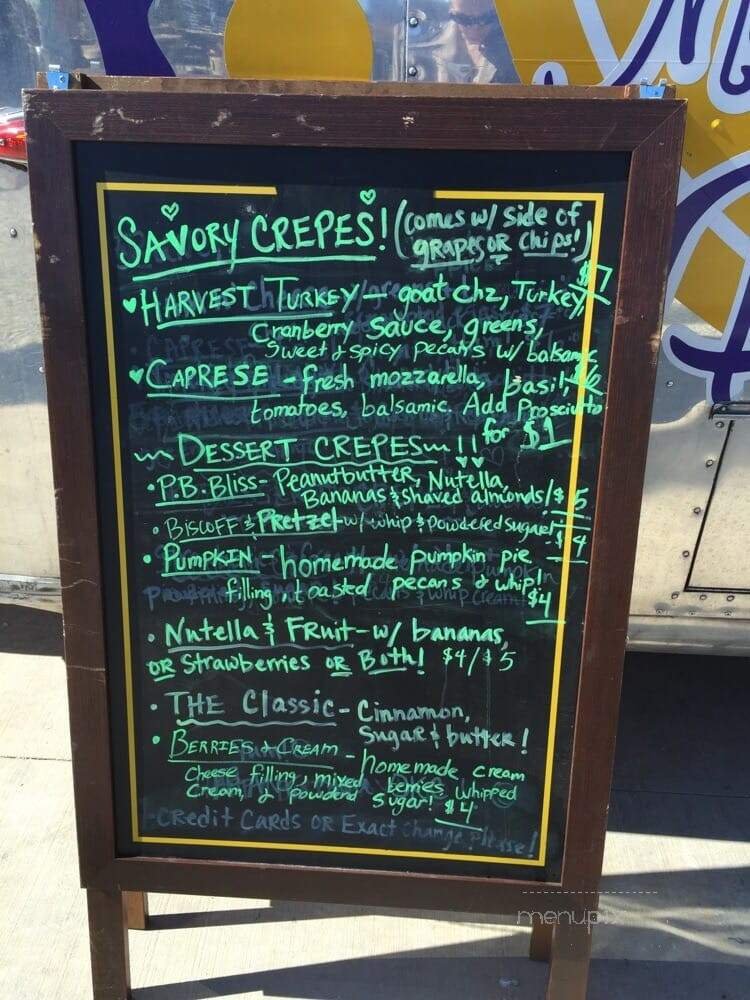 SAVORY CREPES! (comes w/ side of
grapes OR chips!)
HARVEST TURKEY – goat chz, Turkey, $7
Cranberry sauce, greens,
sweet & spicy pecans w/ balsamic
CAPRESE – fresh mozzarella, basil, $6
tomatoes, balsamic. Add Prosciutto
for $1
DESSERT CREPES!!
• P.B. Bliss – Peanutbutter, Nutella,
Bananas & shaved almonds! $5
• BISCOFF & Pretzel w/ whip & powdered sugar! $4
• PUMPKIN – homemade pumpkin pie
filling, toasted pecans & whip!
$4
• Nutella & Fruit – w/ bananas,
OR Strawberries OR Both! $4/$5
• THE Classic – Cinnamon,
Sugar & butter!
• BERRIES & CREAM – homemade cream
Cheese filling, mixed berries, whipped
cream, & powderd sugar! $4
Credit Cards OR Exact Change Please!
menupix